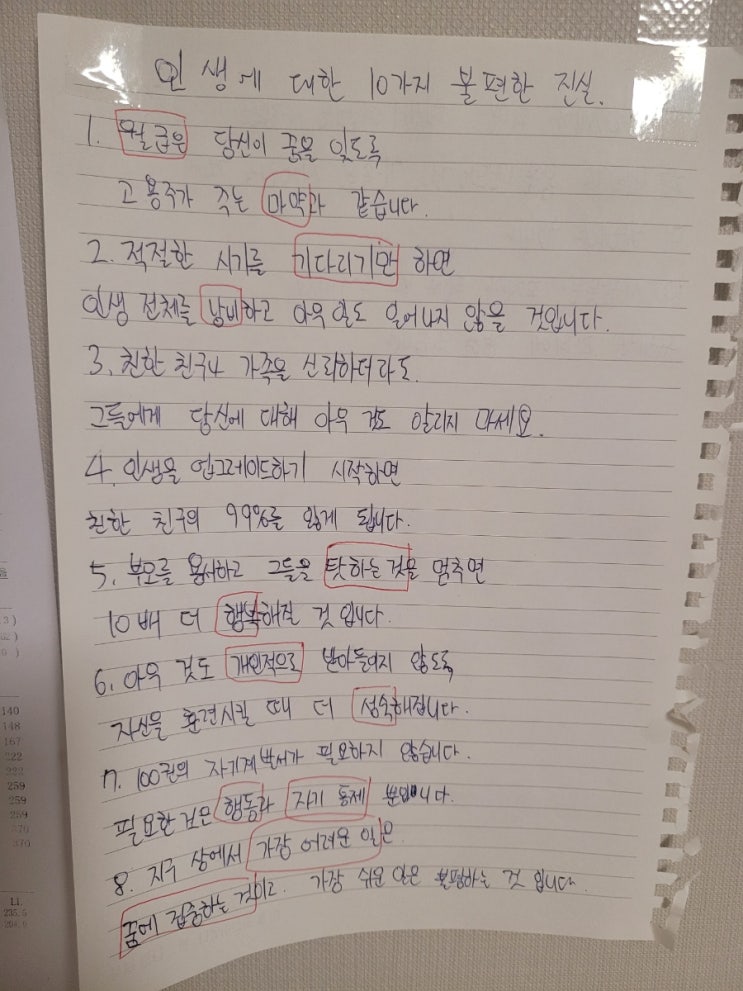 인생에 대한 10가지 불편한 진실.
1. 월급은 당신이 꿈을 잊도록
고용주가 주는 마약과 같습니다.
2. 적절한 시기를 기다리기만 하면
인생 전체를 낭비하고 아무 일도 일어나지 않을 것입니다.
3. 친한 친구나 가족을 신뢰하더라도
그들에게 당신에 대해 아무 것도 알리지 마세요.
4. 인생을 업그레이드하기 시작하면
친한 친구의 99%를 잃게 됩니다.
5. 부모를 용서하고 그들을 탓하는 것을 멈추면
10배 더 행복해질 것 입니다.
6. 아무 것도 개인적으로 받아들이지 않도록
자신을 훈련시킬 때 더 성숙해집니다.
7. 100권의 자기계발서가 필요하지 않습니다.
필요한 것은 행동과 자기 통제 뿐입니다.
8. 지구 상에서 가장 어려운 일은
꿈에 집중하는 것이고. 가장 쉬운 일은 불평하는 것 입니다.
140
148
167
222
222
259
259
259
370
370
LL
235.5